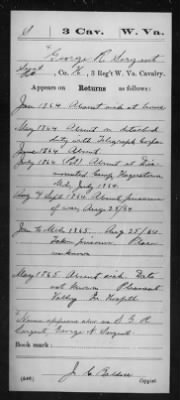 S | 3 Cav. | W. Va.
George R. Sargent
Sergt, Co. K, 3 Reg't W. Va. Cavalry.
Appears on Returns as follows:
Jan 1864 Absent sick at home
May 1864 Absent on detached
duty with Telegraph Corps
June 1864 Absent
July 1864 Absent at Dis-
mounted Camp Hagerstown
Md. July 1864
Aug & Sept 1864 Absent prisoner
of war, Aug 25/64
Jan to Mch 1865. Aug 25/64.
Taken prisoner. Place
unknown
May 1865. Absent sick. Date
not known Pleasant
Valley In Hospital
Name appears also as
Sargent, George Sargent
Book mark:
(546)
Copyist.